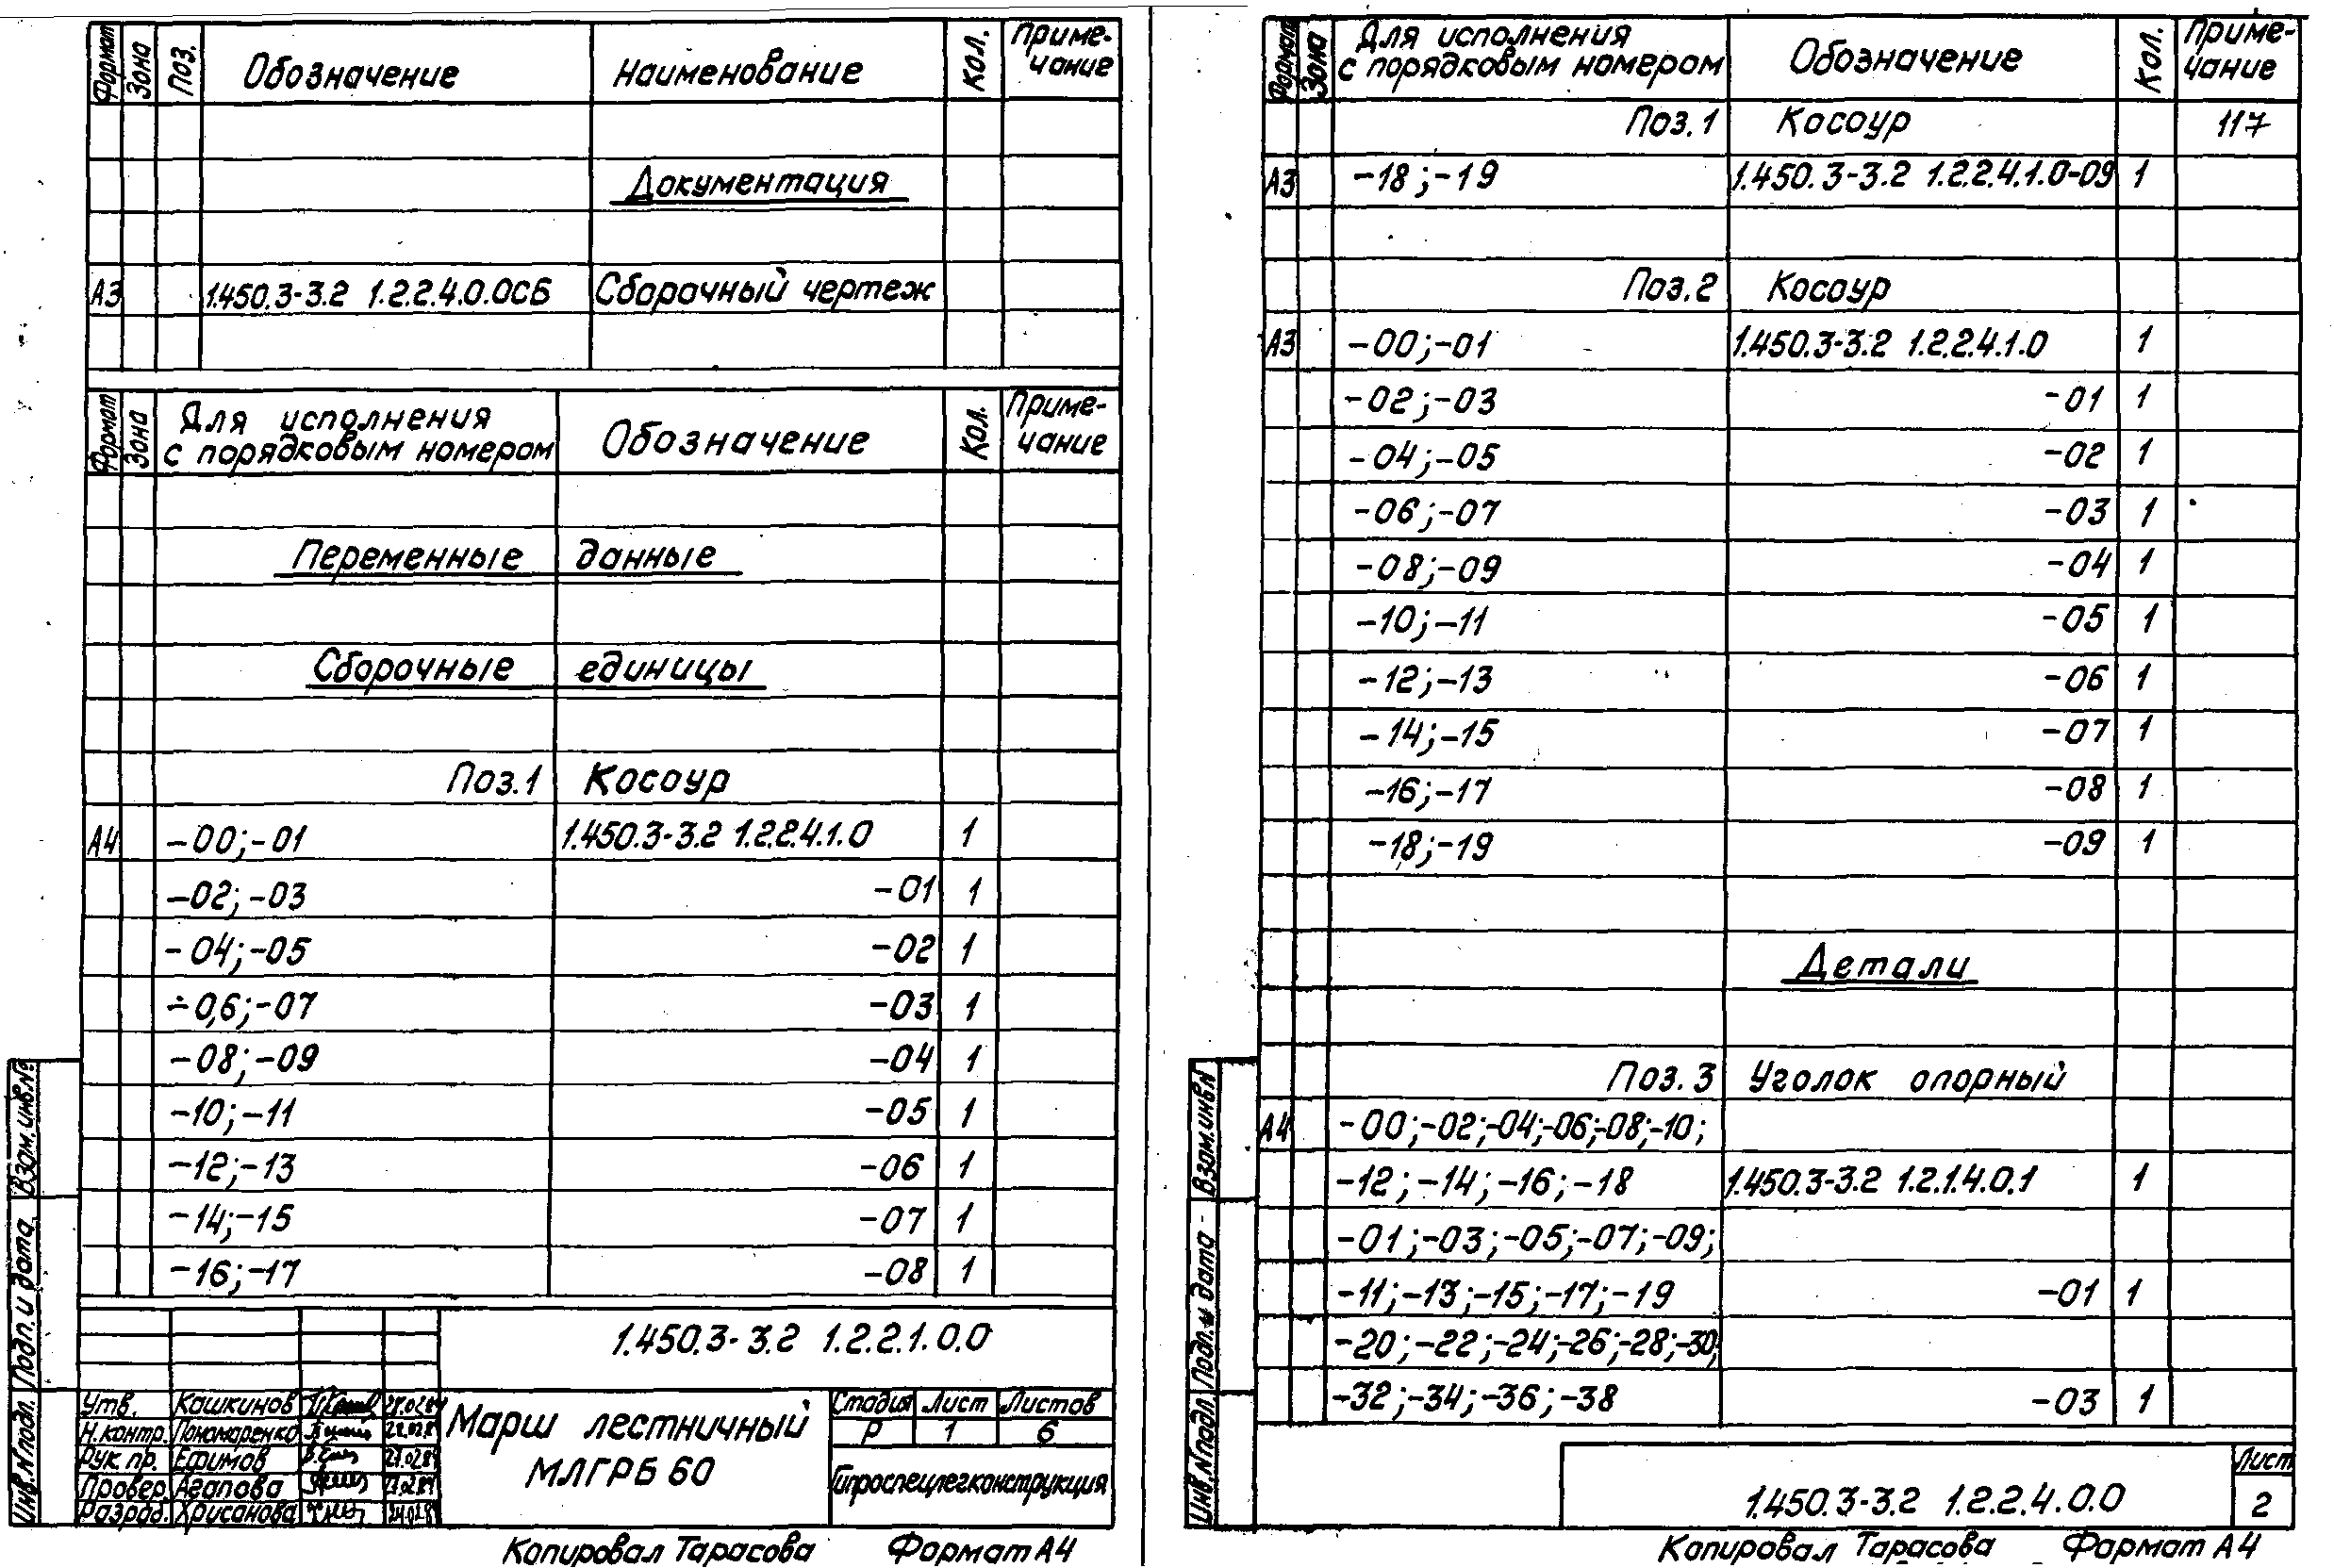 Формат Зона Поз. Обозначение Наименование Кол. Приме-
чание
Документация
А3 1.450.3-3.2 1.2.2.4.0.0СБ Сборочный чертеж
Формат Зона Для исполнения Обозначение Кол. Приме-
с порядковым номером чание
Переменные данные
Сборочные единицы
Поз.1 Косоур
А4 -00;-01 1.450.3-3.2 1.2.2.4.1.0 1
-02;-03 -01 1
-04;-05 -02 1
-0,6;-07 -03 1
-08;-09 -04 1
-10;-11 -05 1
-12;-13 -06 1
-14;-15 -07 1
-16;-17 -08 1
1.450.3-3.2 1.2.2.1.0.0
Утв. Кашкинов
Н.контр. Пономаренко
Рук.пр. Ефимов
Провер. Агапова
Разраб. Хрисанова
Марш лестничный
МЛГРБ 60
Стадия Лист Листов
Р 1 6
Гипроспецлегконструкция
Инв.N подл. Подп. и дата Взам.инв.N
Копировал Тарасова Формат А4
Формат Зона Для исполнения Обозначение Кол. Приме-
с порядковым номером чание
Поз.1 Косоур 117
А3 -18;-19 1.450.3-3.2 1.2.2.4.1.0-09 1
Поз.2 Косоур
А3 -00;-01 1.450.3-3.2 1.2.2.4.1.0 1
-02;-03 -01 1
-04;-05 -02 1
-06;-07 -03 1
-08;-09 -04 1
-10;-11 -05 1
-12;-13 -06 1
-14;-15 -07 1
-16;-17 -08 1
-18;-19 -09 1
Детали
Поз.3 Уголок опорный
А4 -00;-02;-04;-06;-08;-10;
-12;-14;-16;-18 1.450.3-3.2 1.2.1.4.0.1 1
-01;-03;-05;-07;-09;
-11;-13;-15;-17;-19 -01 1
-20;-22;-24;-26;-28;-30;
-32;-34;-36;-38 -03 1
1.450.3-3.2 1.2.2.4.0.0
Лист
2
Инв.N подл. Подп. и дата Взам.инв.N
Копировал Тарасова Формат А4